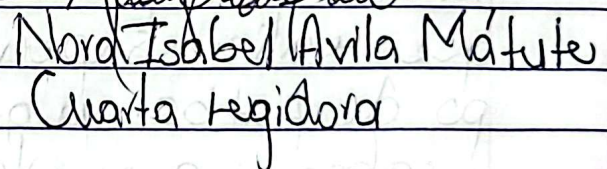 Nora Isabel Avila Mátute
Cuarta regidora